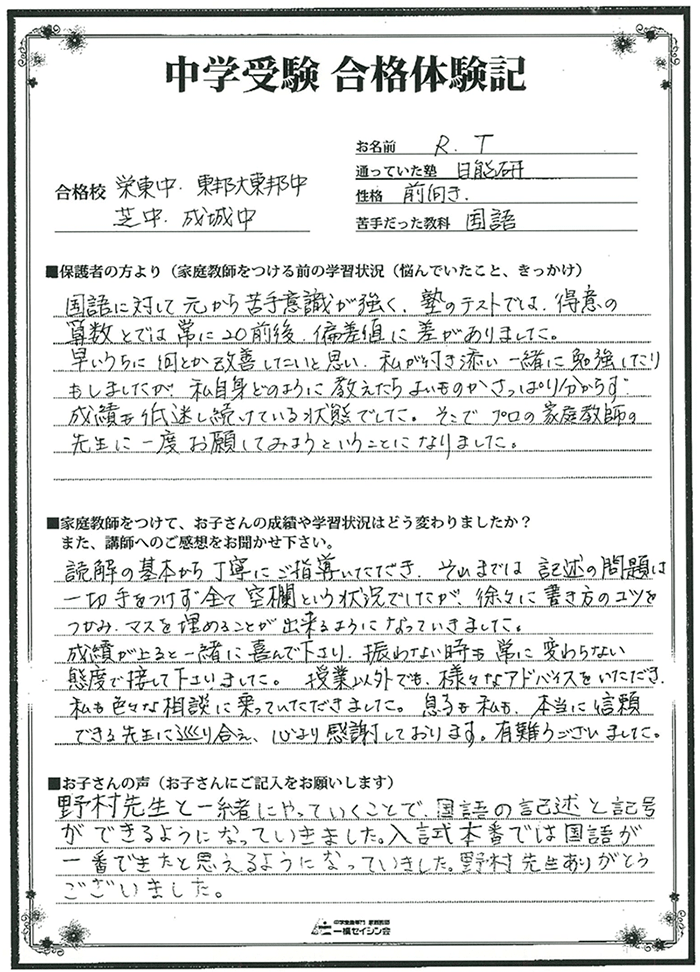 中学受験 合格体験記
お名前 R. T
通っていた塾 日能研
合格校 栄東中. 東邦大東邦中
性格 前向き.
芝中. 成城中
苦手だった教科 国語
■保護者の方より（家庭教師をつける前の学習状況（悩んでいたこと、きっかけ）
国語に対して元から苦手意識が強く、塾のテストでは、得意の
算数とでは常に20前後、偏差値に差がありました。
早いうちに何とか改善したいと思い、私が付き添い一緒に勉強したり
もしましたが、私自身どのように教えたらよいものかさっぱり分からず
成績も低迷し続けている状態でした。そこでプロの家庭教師の
先生に一度お願してみようということになりました。
■家庭教師をつけて、お子さんの成績や学習状況はどう変わりましたか？
また、講師へのご感想をお聞かせ下さい。
読解の基本から丁寧にご指導いただき、それまでは記述の問題は
一切手をつけず全て空欄という状況でしたが、徐々に書き方のコツを
つかみ、マスを埋めることが出来るようになっていきました。
成績が上ると一緒に喜んで下さり、振わない時も常に変わらない
態度で接して下さいました。授業以外でも、様々なアドバイスをいただき、
私も色々な相談に乗っていただきました。息子も私も、本当に信頼
できる先生に巡り合え、心より感謝しております。有難うございました。
■お子さんの声（お子さんにご記入をお願いします）
野村先生と一緒にやっていくことで、国語の記述と記号
ができるようになっていきました。入試本番では国語が
一番できたと思えるようになっていました。野村先生ありがとう
ございました。
中学受験専門 家庭教師
一橋セイシン会